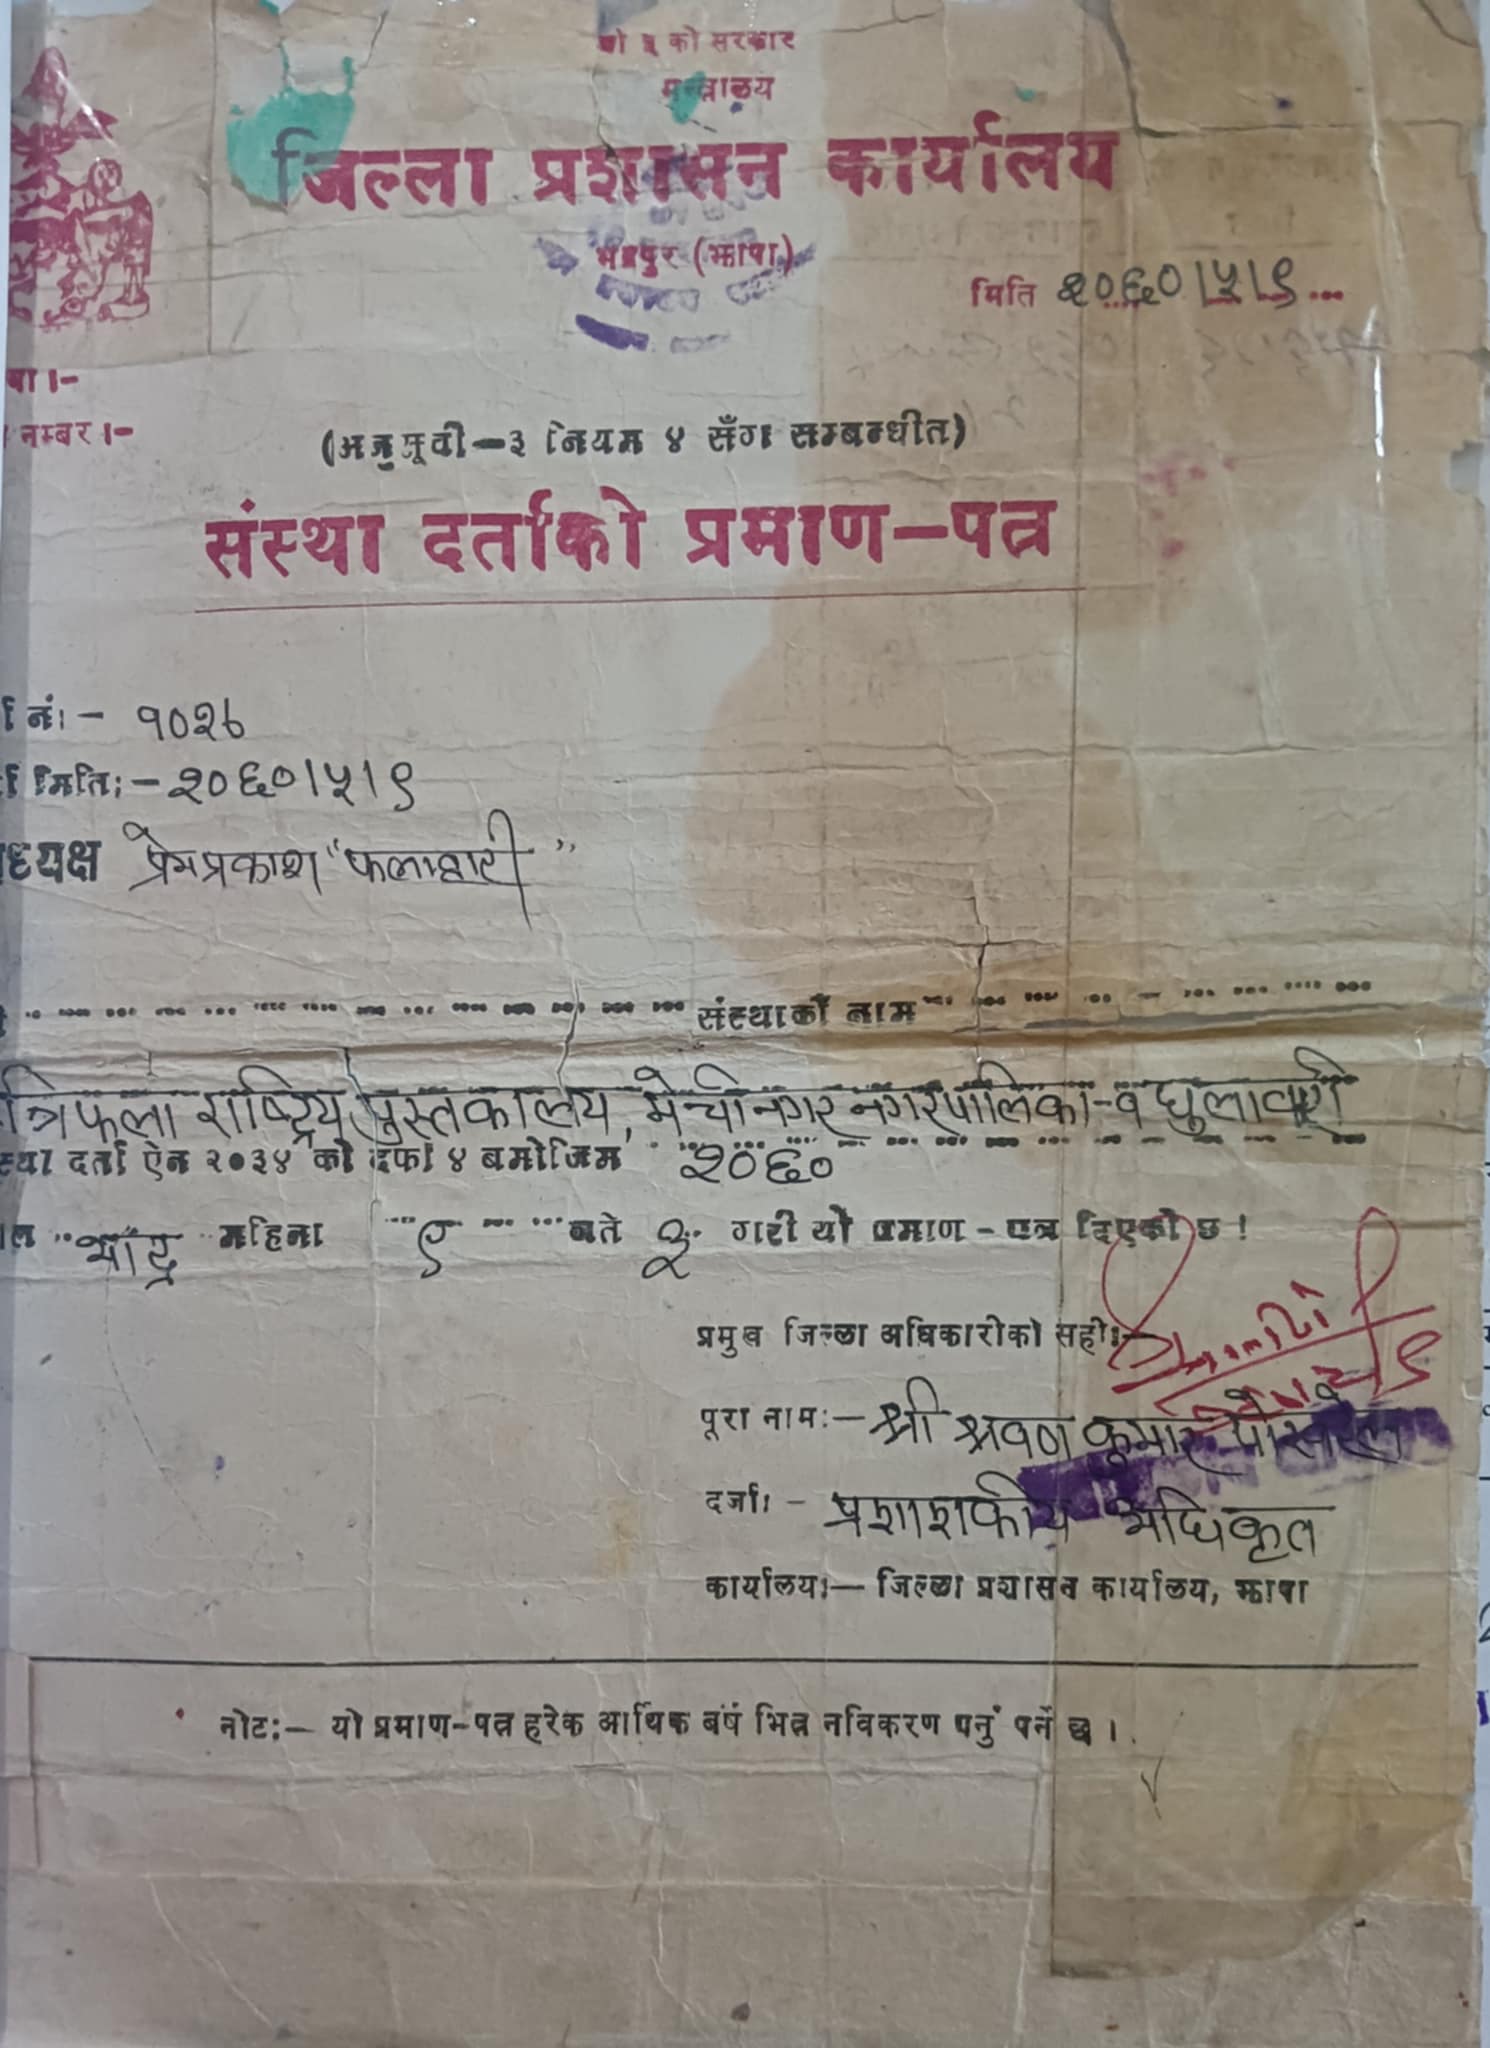 को सरकार
जिल्ला प्रशासन कार्यालय
भद्रपुर (झापा)
मिति २०६०।५।९
नम्बर ।-
(अनुसूची-३ नियम ४ सँग सम्बन्धीत)
संस्था दर्ताको प्रमाण-पत्र
नं। -
मिति:- २०६०।५।९
ध्यक्ष प्रेमप्रकाश "फलाहारी"
संस्थाको नाम
त्रिफला राष्ट्रिय पुस्तकालय, मेचीनगर नगरपालिका- धुलाबारी
स्था दर्ता ऐन २०३४ को दफा ४ बमोजिम २०६०
भाद्र महिना ९ गते गरी यो प्रमाण - पत्र दिएको छ !
प्रमुख जिल्ला अधिकारीको सही:-
पूरा नाम:- श्री श्रवण कुमार पोखरेल
दर्जा। - प्रशाशकीय अधिकृत
कार्यालय।- जिल्ला प्रशासन कार्यालय, झापा
नोट:- यो प्रमाण-पत्र हरेक आर्थिक बर्ष भित्र नविकरण गर्नु पर्ने छ ।